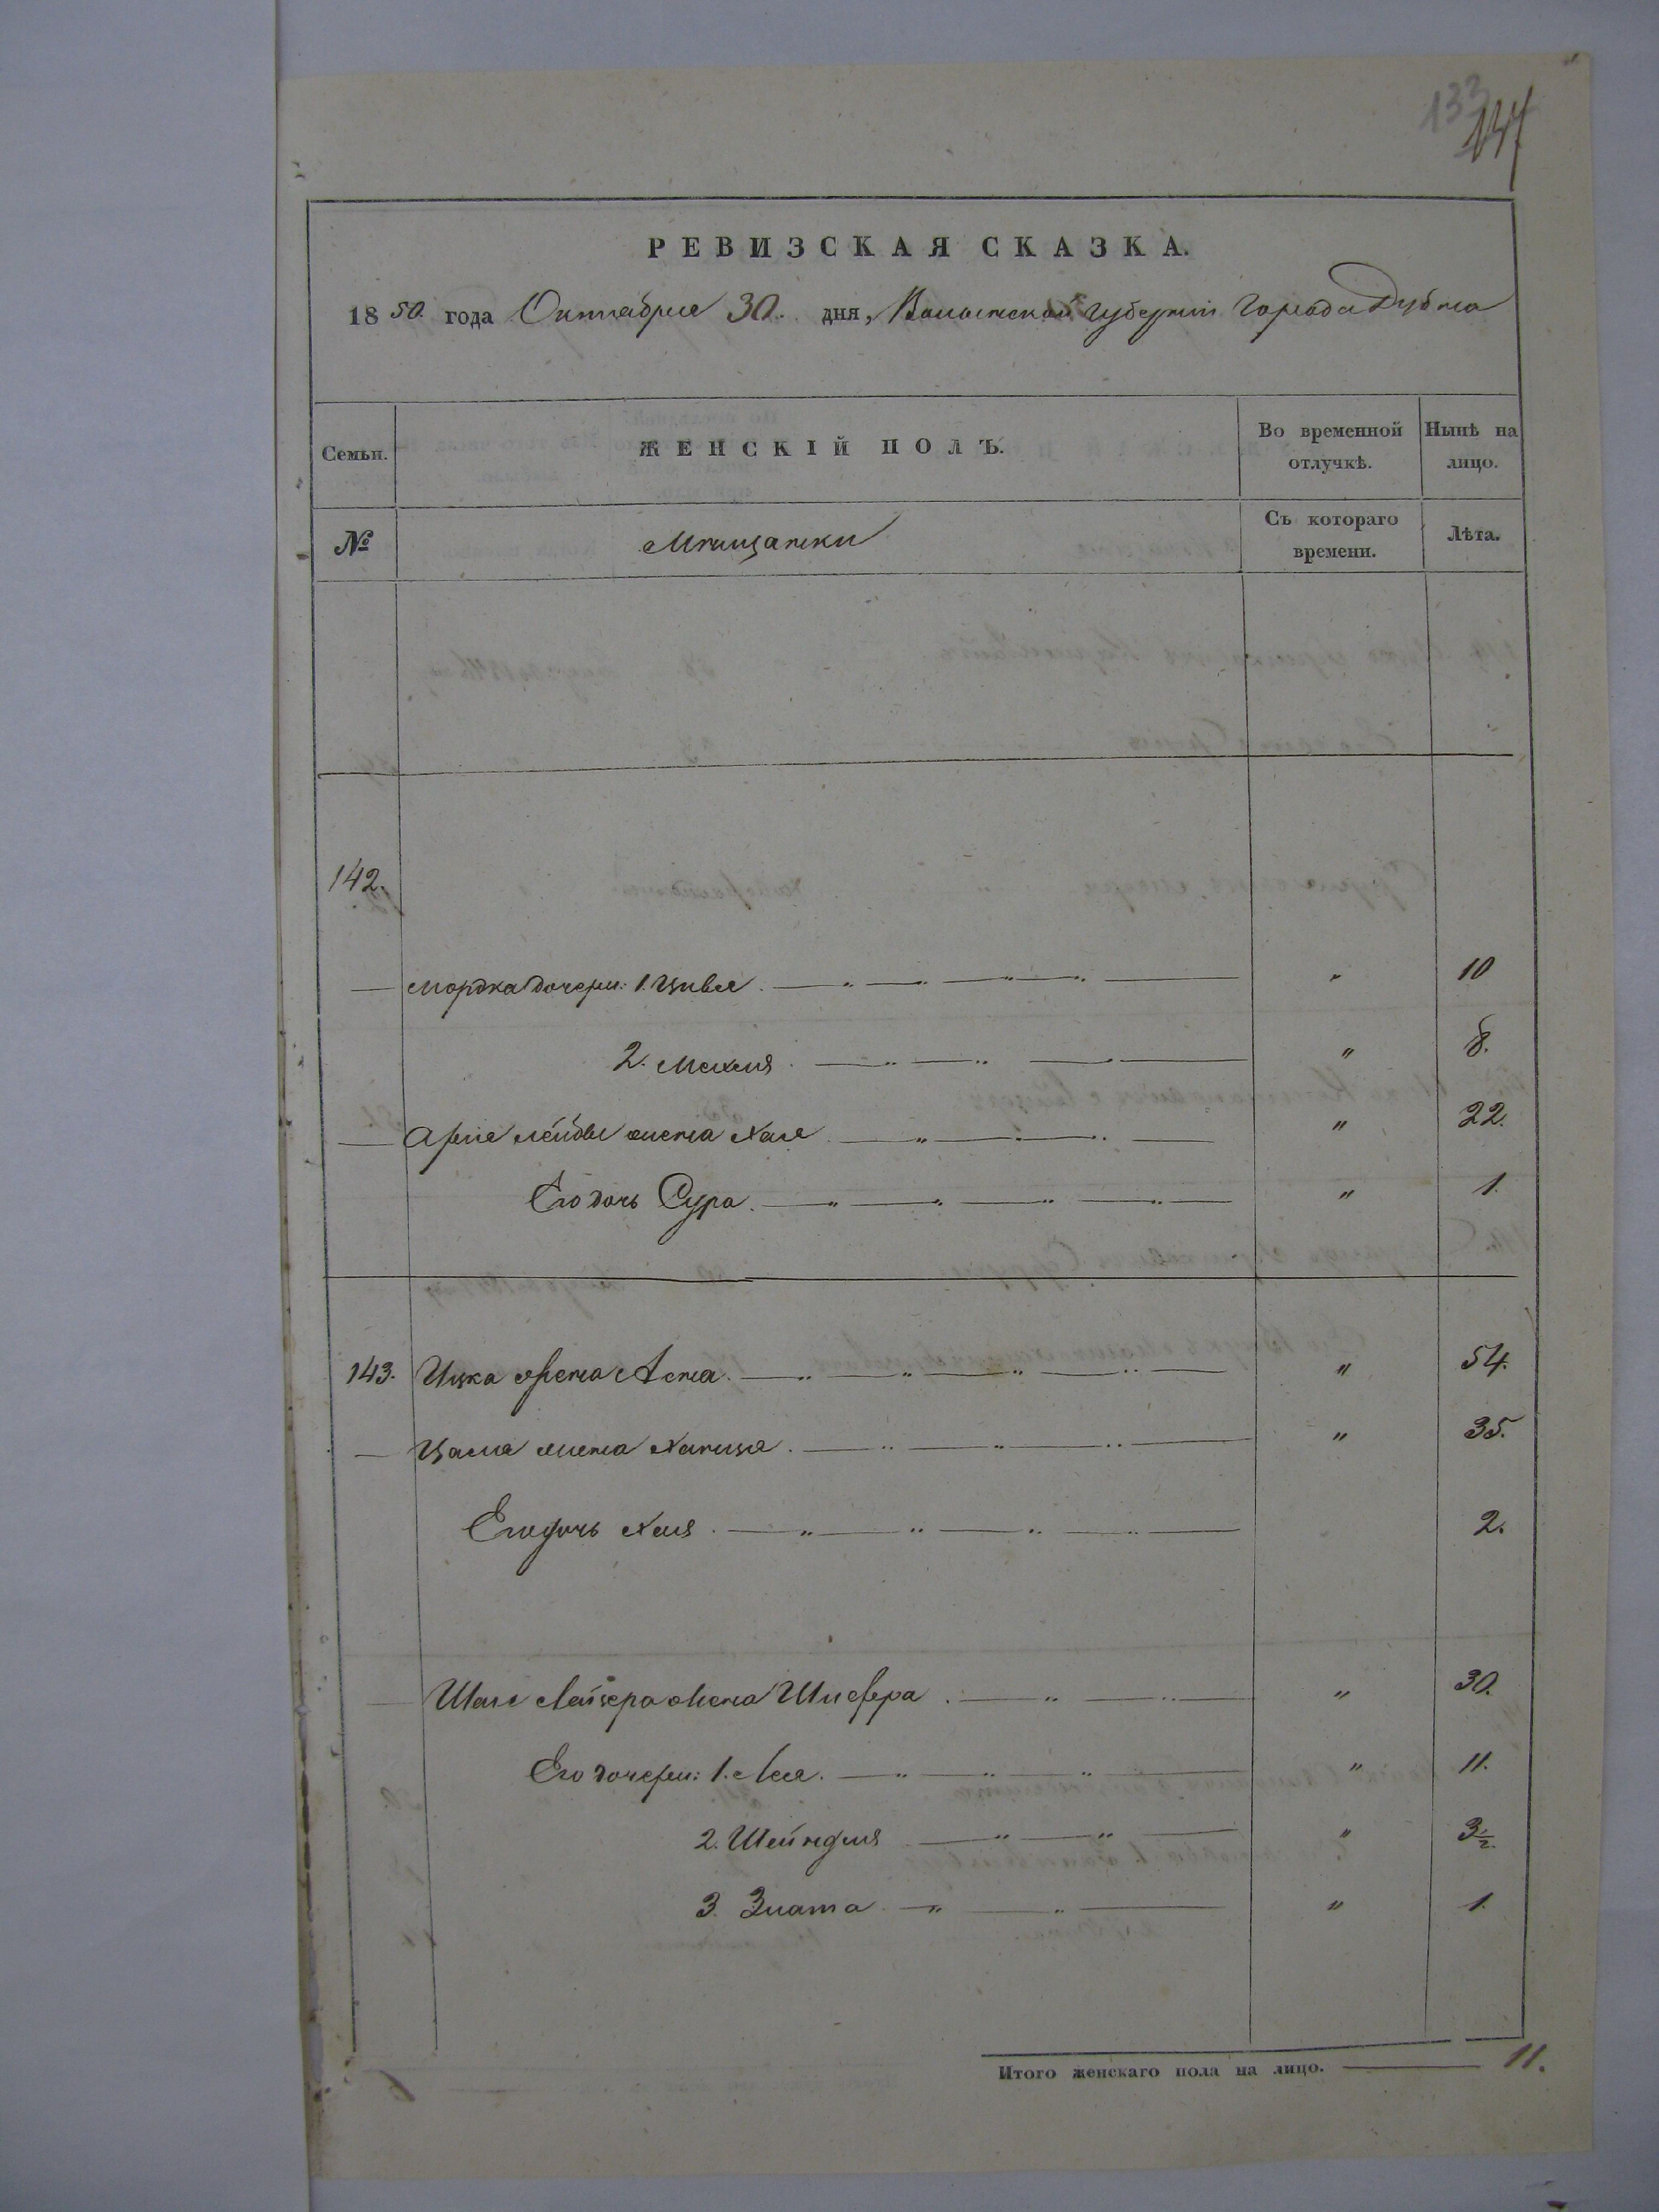 133
РЕВИЗСКАЯ СКАЗКА.
1850. года Октября 30. дня, Волынской Губернiи города Дубна
Семьи.
ЖЕНСКIЙ ПОЛЪ.
Во временной отлучкѣ.
Нынѣ на лицо.
№
Мѣщанки
Съ котораго времени.
Лѣта.
142.
— Мордка дочери: 1. Цивья. — „ — „ — „ — „ — „ 10
2. Мехля. — „ — „ — „ — „ 8.
— Арье Лейбы жена Хая — „ — „ — „ — „ 22.
Его дочь Сура. — „ — „ — „ — „ — „ 1.
143. Ицка жена Асна. — „ — „ — „ — „ — „ 54.
— Цаля жена Ханця. — „ — „ — „ — „ 35.
Его дочь Хая. — „ — „ — „ — „ — 2.
— Шаи Лейзера жена Шифра. — „ — „ — „ 30.
Его дочери: 1. Лея. — „ — „ — „ — „ 11.
2. Шейндля — „ — „ — „ 3½.
3. Злата — „ — „ — „ 1.
Итого женскаго пола на лицо. — 11.